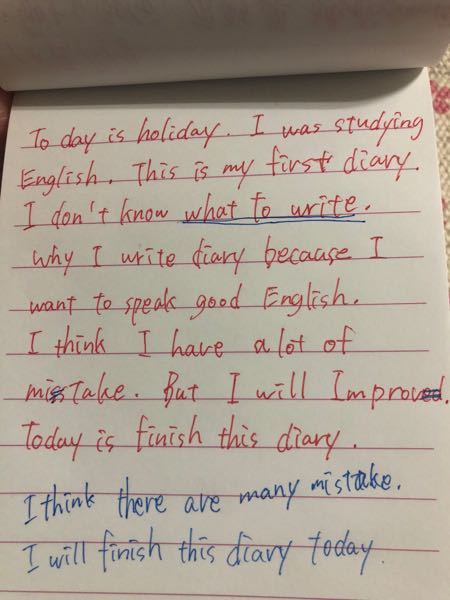 To day is holiday. I was studying
English. This is my first diary.
I don't know what to write.
Why I write diary because I
want to speak good English.
I think I have a lot of
misTake. But I will Improved.
Today is finish this diary.
I think there are many mistake.
I will finish this diary today.